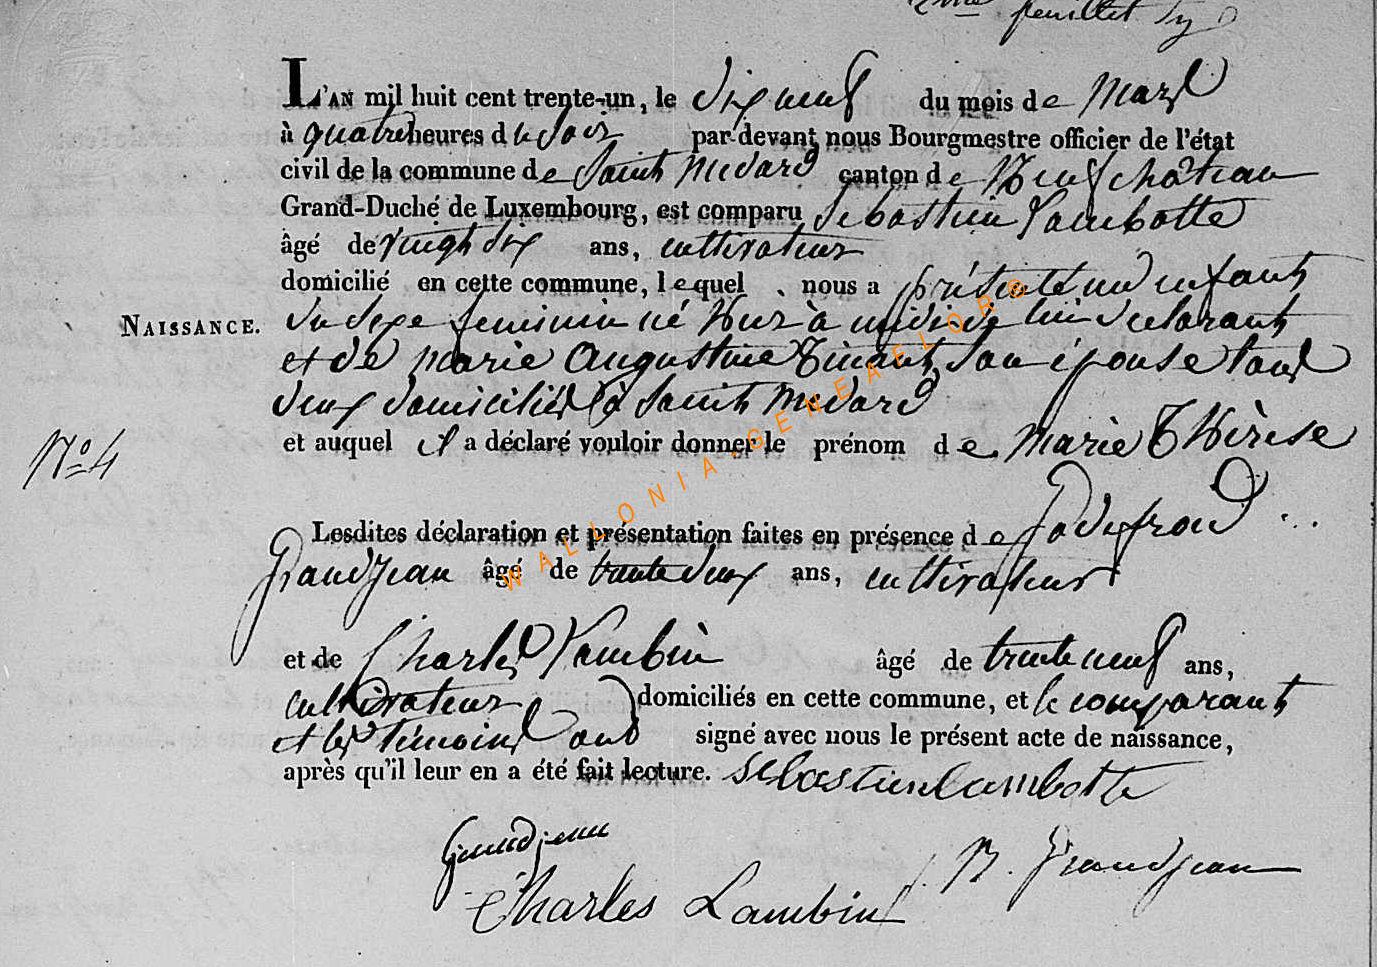 2me feuillet
L'AN mil huit cent trente-un, le dixneuf du mois de Mars
à quatre heures du Soir par-devant nous Bourgmestre officier de l'état
civil de la commune de Saint Médard canton de Neufchâteau
Grand-Duché de Luxembourg, est comparu Sebastien Lambotte
âgé de vingt six ans, cultivateur
domicilié en cette commune, lequel nous a présenté un enfant
du sexe feminin né Hier à midi de lui declarant
et de Marie Augustine Tinant, son épouse tous
deux domiciliés à Saint Médard
NAISSANCE.
et auquel il a déclaré vouloir donner le prénom de Marie Thérèse
No 4
Lesdites déclaration et présentation faites en présence de Godefroid
Grandjean âgé de trente deux ans, cultivateur
et de Charles Lambin âgé de trente neuf ans,
cultivateur domiciliés en cette commune, et le comparant
et les témoins ont signé avec nous le présent acte de naissance,
après qu'il leur en a été fait lecture. sebastien lambotte
Grandjean
Charles Lambin
Grandjean
WALLONIA-GENEAELORB